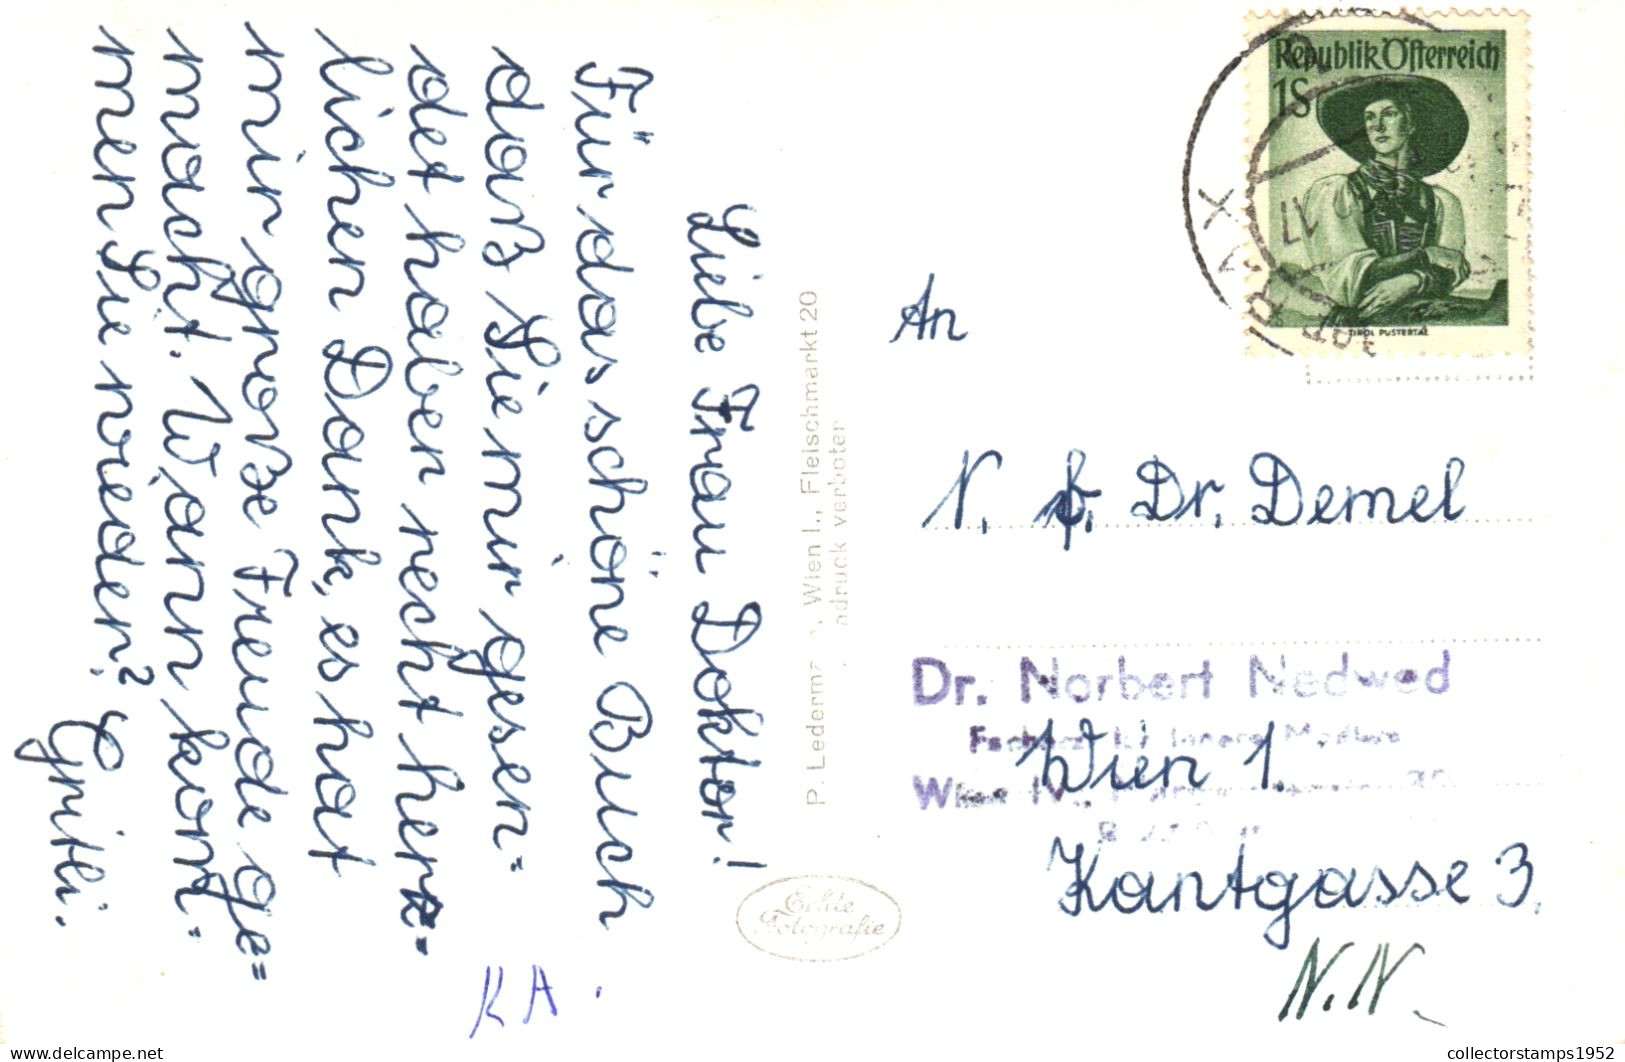 Liebe Frau Doktor!
Für das schöne Buch
daß Sie mir gesen=
det haben recht herz=
lichen Dank, es hat
mir große Freude ge=
macht. Wann kom-
men Sie wieder?
Gritli.
KA.
P. Lederm , Wien I., Fleischmarkt 20
verboten
Echte
Fotografie
Republik Österreich
1S
TIROL PUSTERTAL
RAX
17
An
N. Dr. Demel
Dr. Norbert Nedwed
Innere
Wien 1.
Wien IV.,
Kantgasse 3.
N.N.
collectorstamps1952